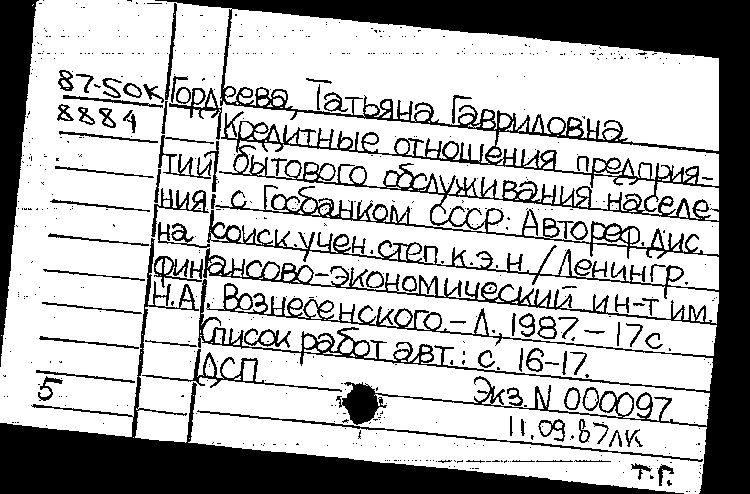 87-50К Гордеева, Татьяна Гавриловна
8884 Кредитные отношения предприя-
тий бытового обслуживания населе-
ния с Госбанком СССР: Автореф.дис.
на соиск.учен.степ.к.э.н./Ленингр.
финансово-экономический ин-т им.
Н.А. Вознесенского.-Л.,1987.-17с.
Список работ авт.: с. 16-17.
ДСП
5 Экз.N 000097.
11.09.87ЛК
Т.Г.